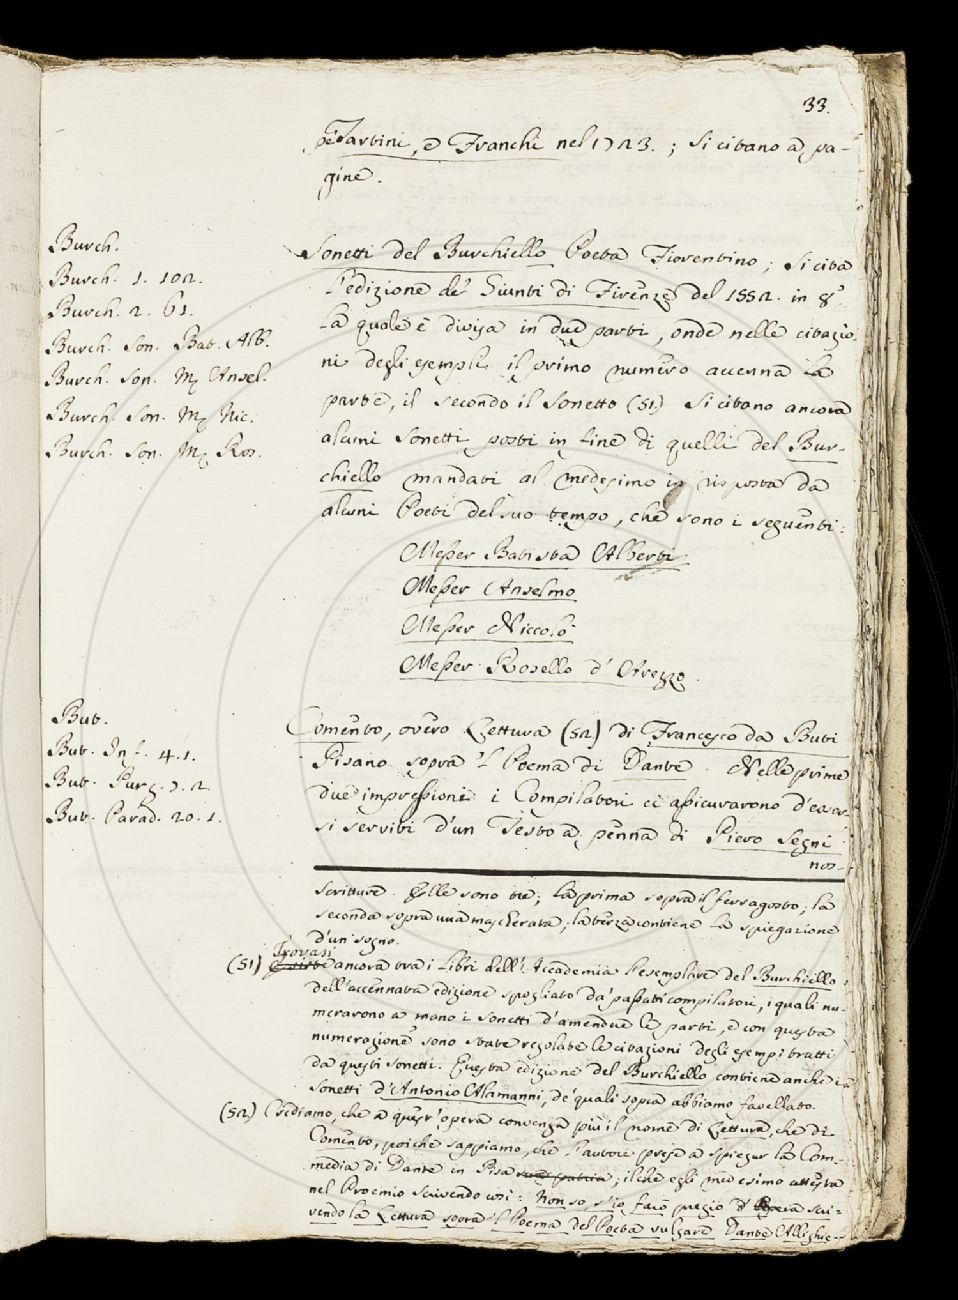 33.
pe' Tartini, e Franchi nel 1723. ; Si citano a pa-
gine.
Burch.
Burch. 1. 102.
Burch. 2. 61.
Burch. Son. Bat. Alb.
Burch. Son. M. Ansel.
Burch. Son. M. Nic.
Burch. Son. M. Ros.
Sonetti del Burchiello Poeta Fiorentino; Si cita
l'edizione de' Giunti di Firenze del 1552. in 8°.
la quale è divisa in due parti, onde nelle citazio-
ni degli esempli il primo numero accenna la
parte, il secondo il Sonetto (51) Si citano ancora
alcuni Sonetti posti in fine di quelli del Bur-
chiello mandati al medesimo in risposta da
alcuni Poeti del suo tempo, che sono i seguenti:
Messer Batista Alberti
Messer Anselmo
Messer Niccolò
Messer Rosello d'Arezzo.
But.
But. Inf. 4. 1.
But. Purg. 7. 2.
But. Parad. 20. 1.
Comento, overo Lettura (52) di Francesco da Buti
Pisano sopra 'l Poema di Dante. Nelle prime
due impressioni i Compilatori ci assicurarono d'esser-
si serviti d'un Testo a penna di Piero Segni
nos-
scritture. Elle sono tre; la prima sopra il ferragosto; la
seconda sopra una mascherata; la terza contiene la spiegazione
d'un sogno.
Trovasi
(51) ancora tra i Libri dell'Accademia l'esemplare del Burchiello
dell'accennata edizione spogliato da' passati compilatori, i quali nu-
merarono a mano i Sonetti d'amendue le parti, e con questa
numerazione sono state regolate le citazioni degli esempi tratti
da questi Sonetti. Questa edizione del Burchiello contiene anche i
Sonetti d'Antonio Alamanni, de' quali sopra abbiamo favellato.
(52) Crediamo, che a quest'opera convenga più il nome di Lettura, che di
Comento, poichè sappiamo, che l'autore prese a spiegar la Com-
media di Dante in Pisa sua patria; ilchè egli medesimo attesta
nel Proemio scrivendo così: Non so s'io farò pregio d'opera scri-
vendo la Lettura sopra 'l Poema del Poeta vulgare Dante Allighie-